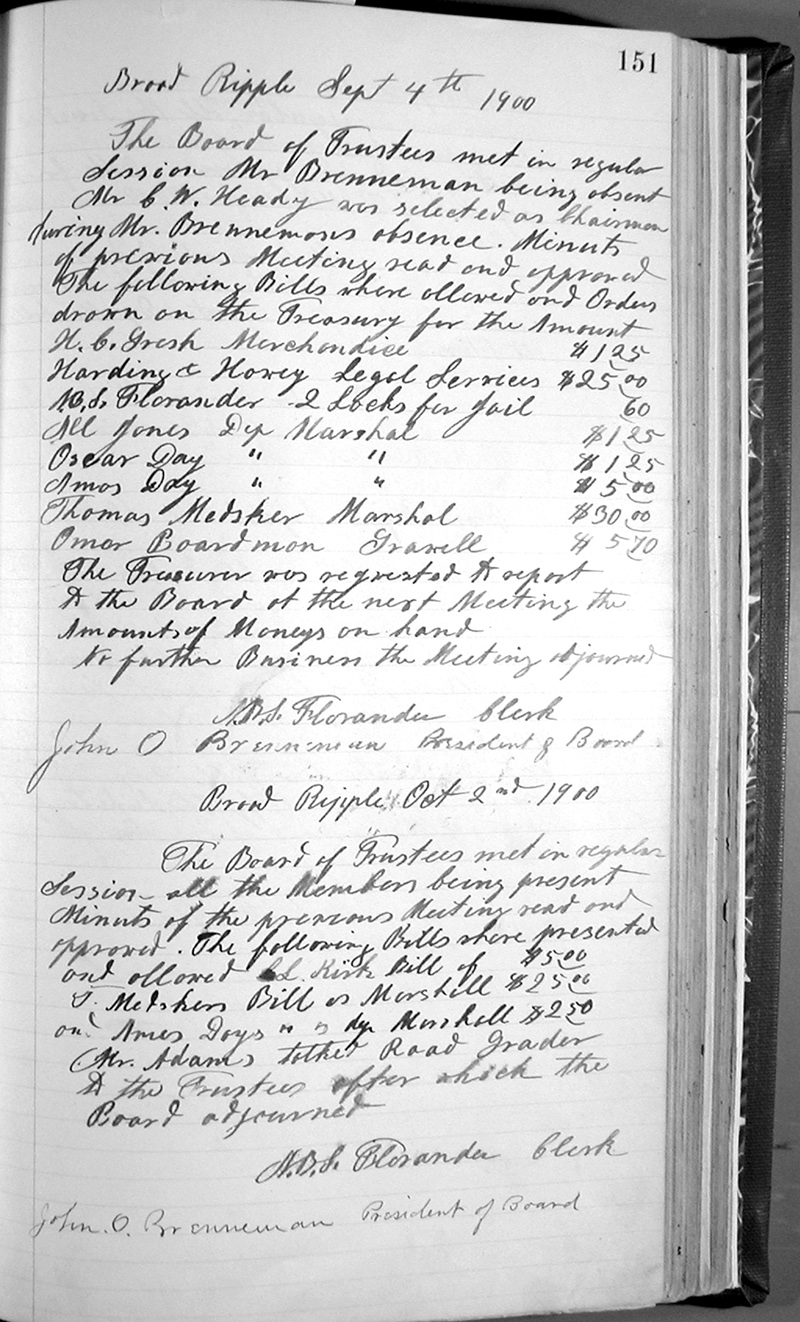 151
Broad Ripple Sept 4th 1900
The Board of Trustees met in regular
Session Mr Brenneman being absent
Mr C. W. Heady was selected as Chairman
during Mr. Brennemans absence. Minuts
of previous Meeting read and approved
The following Bills where allowed and Orders
drawn on the Treasury for the Amount
H. C. Gresh Merchandice $1 25
Harding & Hovey Legal Services $25 00
N.B.S. Florander 2 Locks for Jail 60
All Jones Dep Marshal $1 25
Oscar Day " " $1 25
Amos Day " " $5 00
Thomas Medsker Marshal $30 00
Omer Boardman Gravell $5 70
The Treasurer was requested to report
to the Board at the next Meeting the
Amounts of Moneys on hand
No further Business the Meeting adjourned
N.B.S. Florander Clerk
John O Brenneman President of Board
Broad Ripple Oct 2nd 1900
The Board of Trustees met in regular
Session all the Members being present
Minuts of the previous Meeting read and
approved. The following Bills where presented
and allowed L. Kirk Bill of $5 00
T. Medskers Bill as Marshall $25 00
and Amos Days " " dep Marshall $2 50
Mr. Adams talked Road Grader
to the Trustees after which the
Board adjourned
N.B.S. Florander Clerk
John. O. Brenneman President of Board